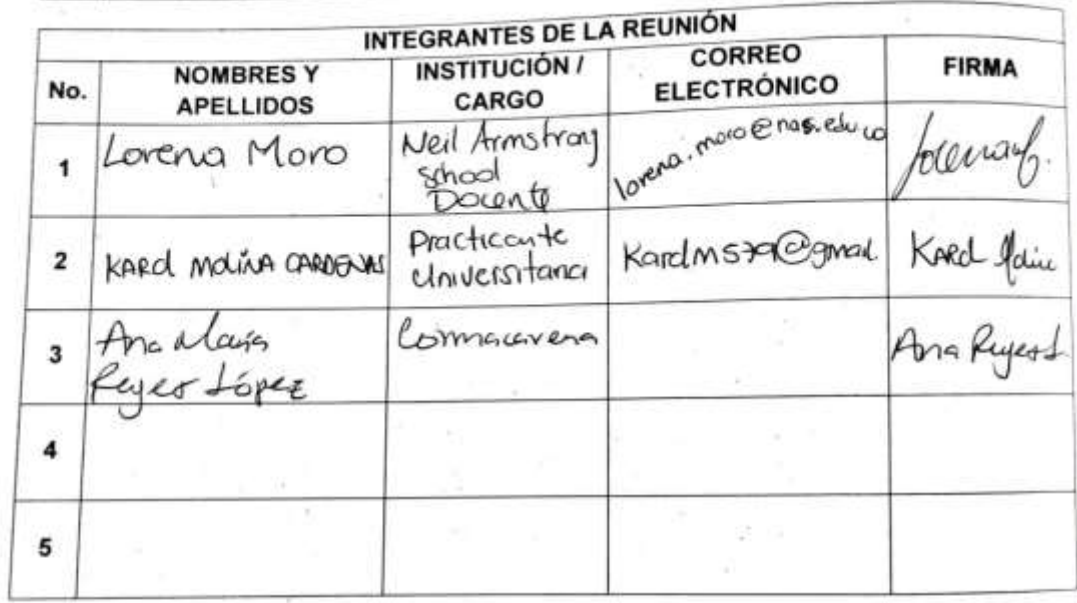 INTEGRANTES DE LA REUNIÓN
No.
NOMBRES Y
APELLIDOS
INSTITUCIÓN /
CARGO
CORREO
ELECTRÓNICO
FIRMA
1
Lorena Moro
Neil Armstrong
School
Docente
lorena.moro@nas.edu.co
2
KAROl MOLINA CARDENAS
Practicante
Universitaria
Karolm579@gmail.
KAROl
3
Ana María
Reyes López
Cormacarena
Ana Reyes L
4
5